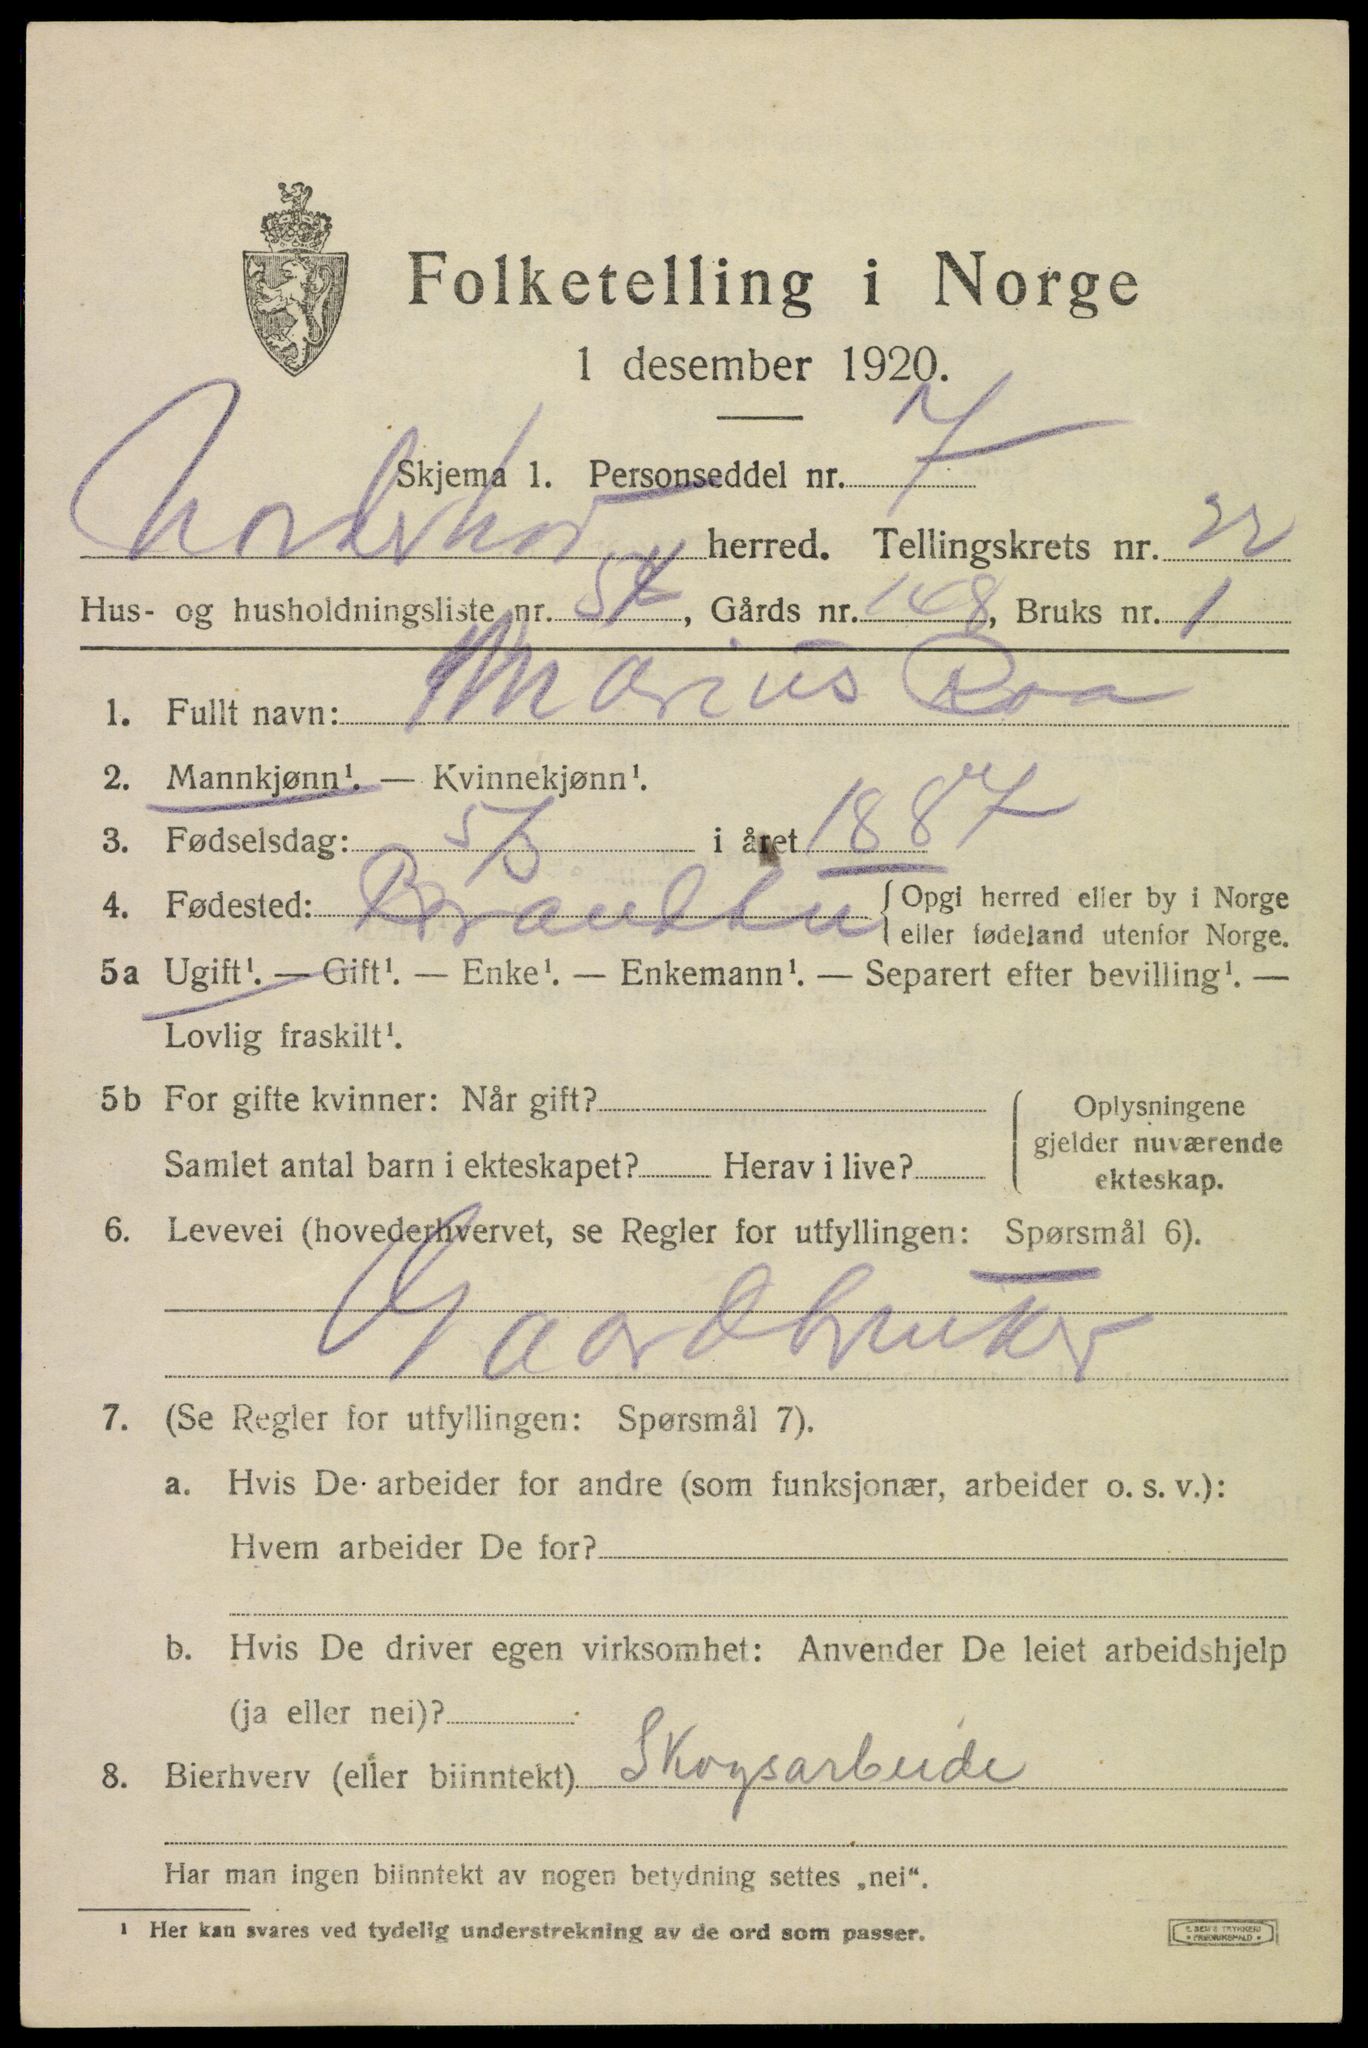 Folketelling i Norge
1 desember 1920.
Skjema 1. Personseddel nr. 7
Norderhov herred. Tellingskrets nr. 22
Hus- og husholdningsliste nr. 57, Gårds nr. 148, Bruks nr. 1
1. Fullt navn: Marius Roa
2. Mannkjønn¹. — Kvinnekjønn¹.
3. Fødselsdag: 5/5 i året 1887
4. Fødested: Brandbu {Opgi herred eller by i Norge
eller fødeland utenfor Norge.
5a Ugift¹. — Gift¹. — Enke¹. — Enkemann¹. — Separert efter bevilling¹. —
Lovlig fraskilt¹.
5b For gifte kvinner: Når gift?
Samlet antal barn i ekteskapet? Herav i live?
Oplysningene
gjelder nuværende
ekteskap.
6. Levevei (hovederhvervet, se Regler for utfyllingen: Spørsmål 6).
Gaardbruker
7. (Se Regler for utfyllingen: Spørsmål 7).
a. Hvis De arbeider for andre (som funksjonær, arbeider o. s. v.):
Hvem arbeider De for?
b. Hvis De driver egen virksomhet: Anvender De leiet arbeidshjelp
(ja eller nei)?
8. Bierhverv (eller biinntekt) Skogsarbeide
Har man ingen biinntekt av nogen betydning settes „nei".
¹ Her kan svares ved tydelig understrekning av de ord som passer.